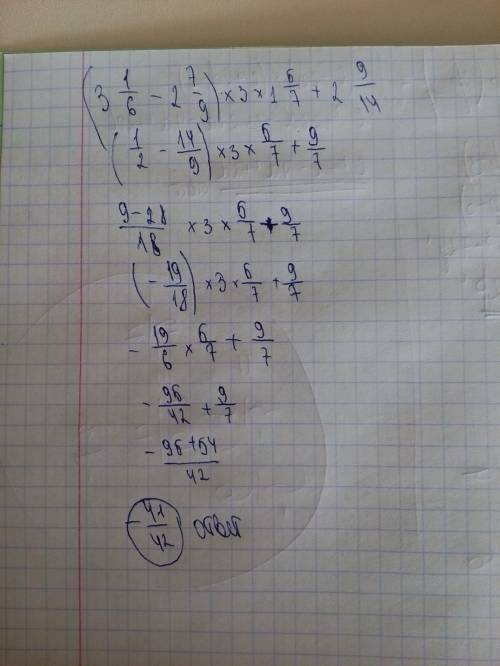 (3 1/6 - 2 7/9) × 3 × 1 6/7 + 2 9/14
(1/2 - 14/9) × 3 × 6/7 + 9/7
9-28/18 × 3 × 6/7 + 9/7
(- 19/18) × 3 × 6/7 + 9/7
- 19/6 × 6/7 + 9/7
- 95/42 + 9/7
- 95+54/42
- 41/42 ответ